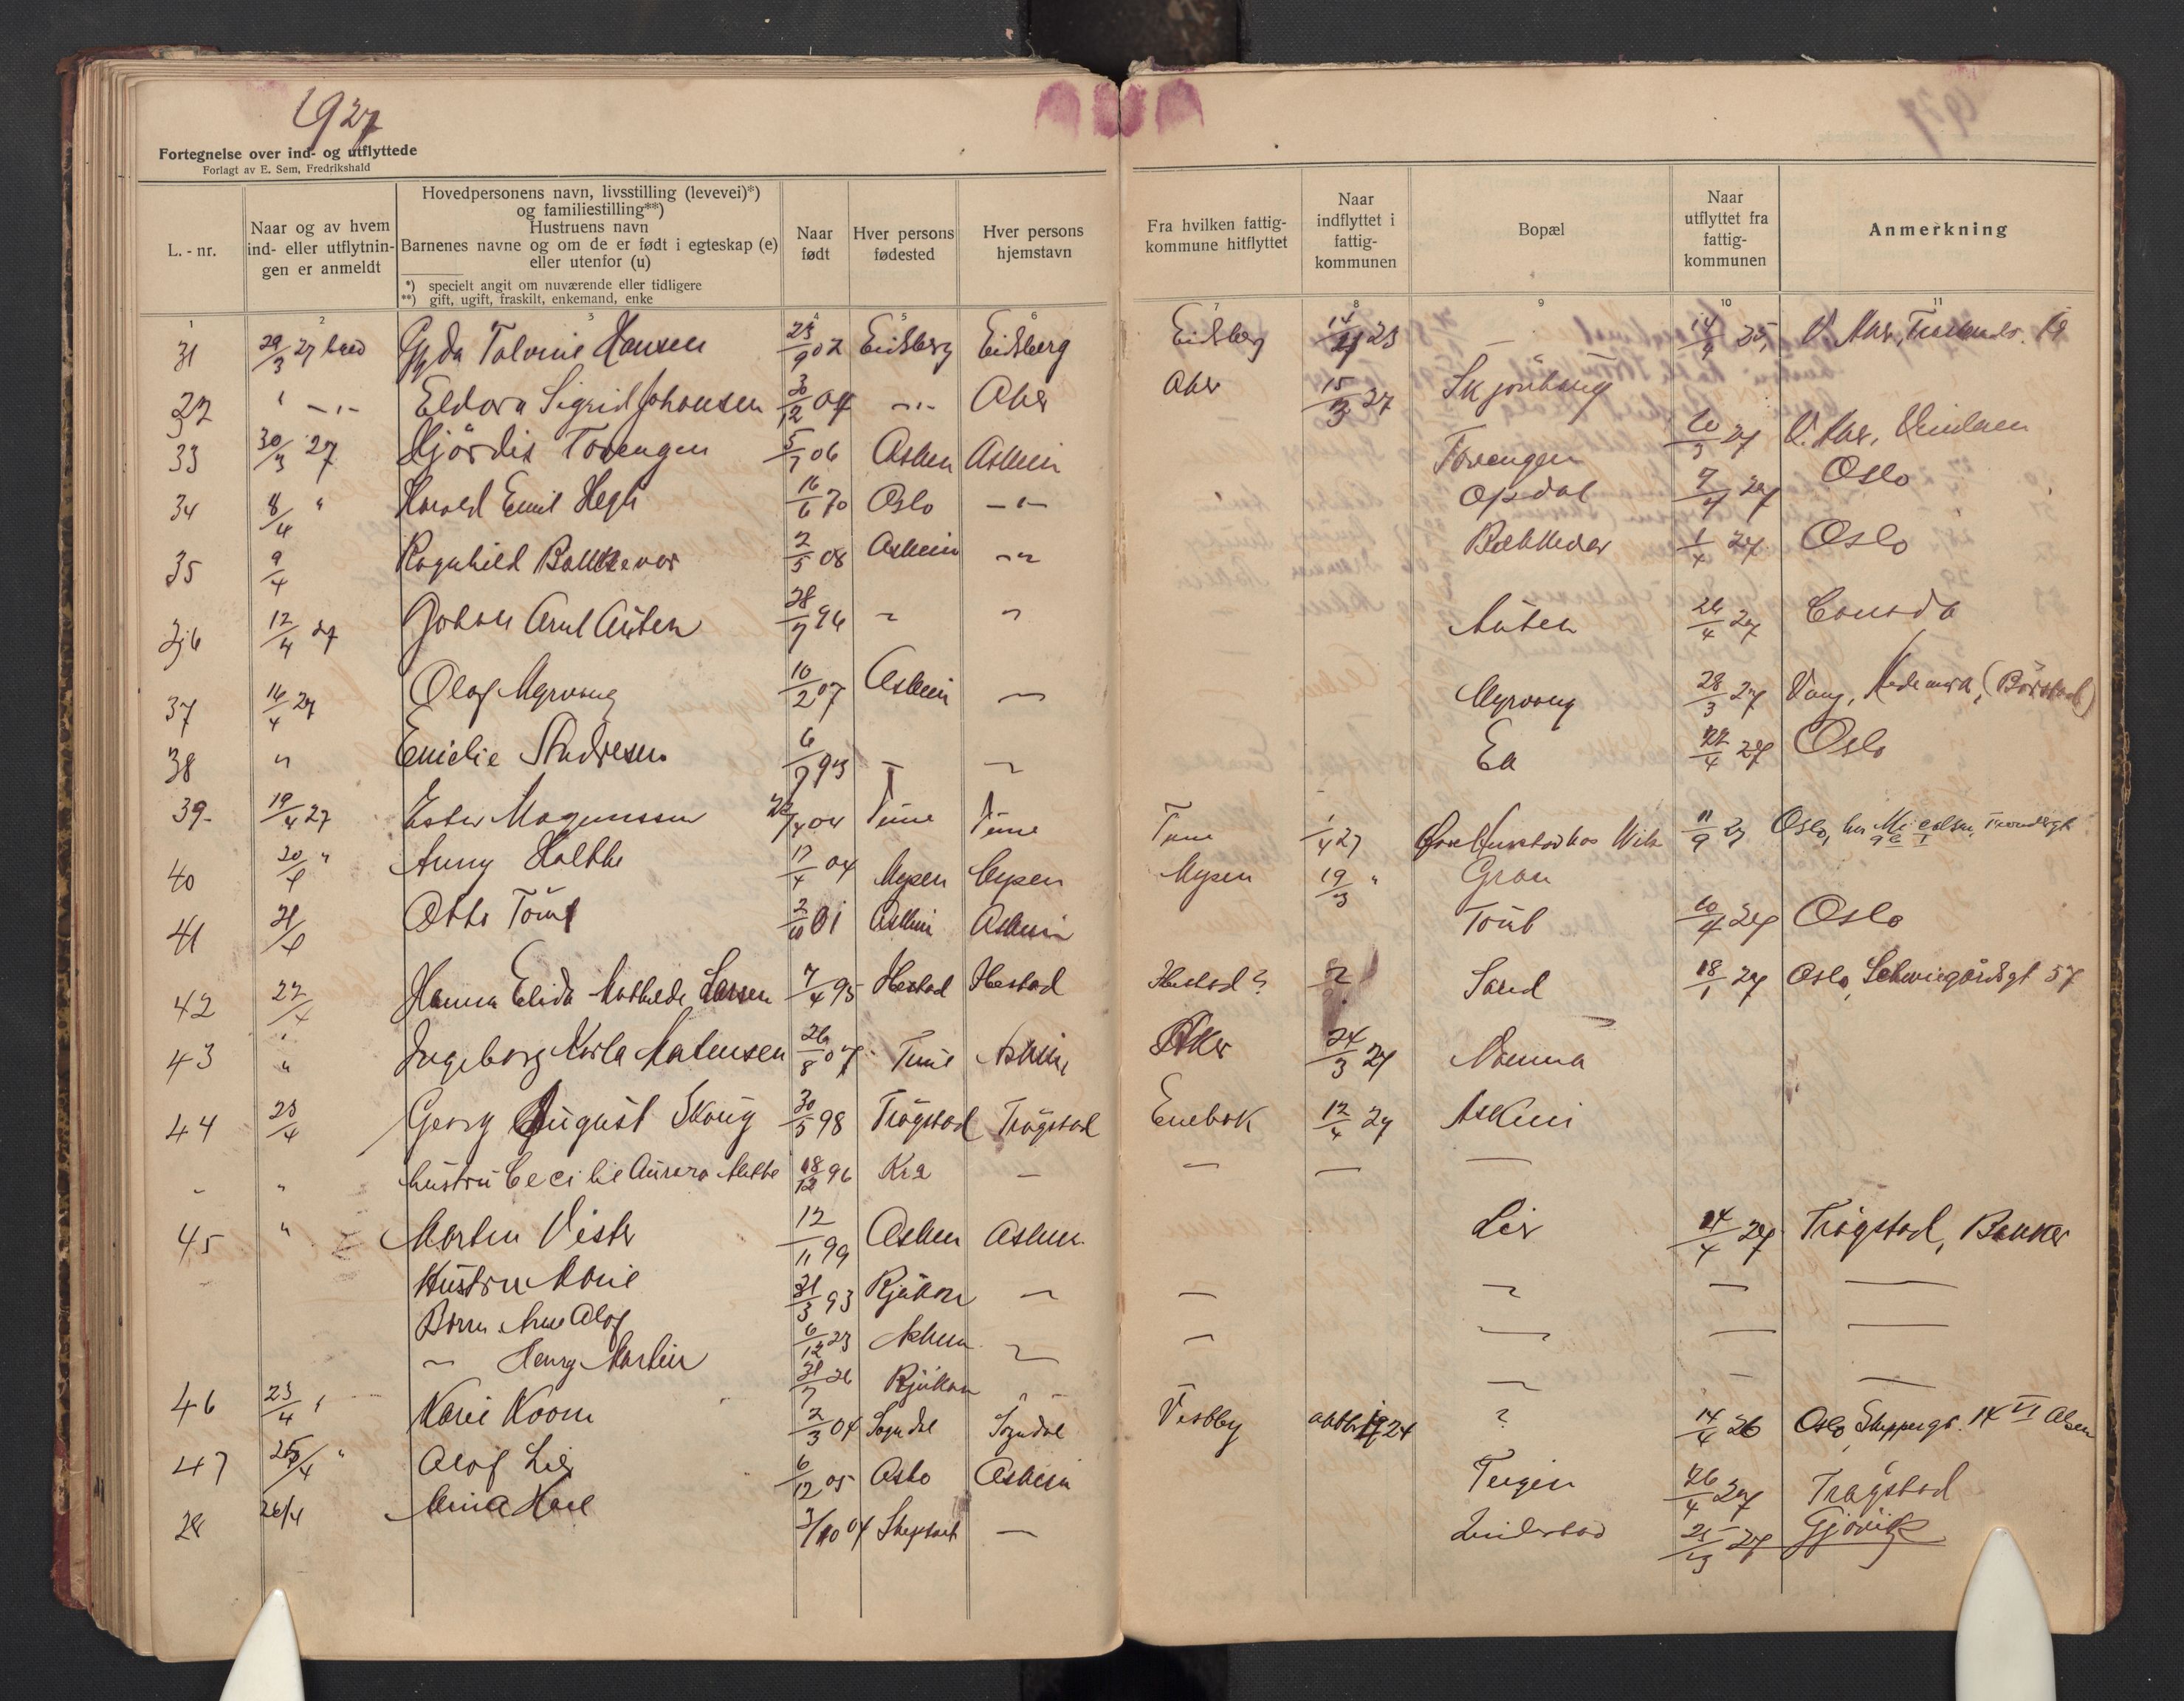 1927
Fortegnelse over ind- og utflyttede
Forlagt av E. Sem, Fredrikshald
L.-nr.
Naar og av hvem ind- eller utflytningen er anmeldt
Hovedpersonens navn, livsstilling (levevei)*) og familiestilling**)
Hustruens navn
Barnenes navne og om de er født i egteskap (e) eller utenfor (u)
*) specielt angit om nuværende eller tidligere
**) gift, ugift, fraskilt, enkemand, enke
Naar født
Hver persons fødested
Hver persons hjemstavn
Fra hvilken fattigkommune hitflyttet
Naar indflyttet i fattigkommunen
Bopæl
Naar utflyttet fra fattigkommunen
Anmerkning
1 2 3 4 5 6 7 8 9 10 11
31 29/3 27 Gyda Hansen 23/9 02 Eidsberg Eidsberg Eidsberg 23 — 14/4 25 V. Aker
32 " —"— Eldora Sigrid Johansen 30/12 04 —"— Aker Aker 15/3 27
33 30/3 27 Hjördis Tovengen 5/7 06 Askim Askim Tovengen 10/3 27 V. Aker
34 8/4 " Harald Emil Hegh 16/6 70 Oslo —"— Opdal 7/4 27 Oslo
35 9/4 Ragnhild Bakkevar 2/5 08 Askim —"— 1/4 27 Oslo
36 12/4 27 Johan Arnt Auten 28/7 96 " " Auten 26/4 27 Canada
37 16/4 27 Olaf Myrvang 10/2 07 Askim — Myrvang 28/3 27 Vang, Hedemark, (Börstad)
38 " Emilie Andresen 6/9 93 — — Ea 22/4 27 Oslo
39 19/4 27 Ester Magnussen 04 Tune Tune Tune 1/4 27 11/9 27 Oslo
40 20/4 " Anny Holthe 17/4 04 Mysen Mysen Mysen 19/3 " Gran
41 21/4 Otto Tömt 2/10 01 Askim Askim 10/4 27 Oslo
42 22/4 Hanna Elida Mathilde Larsen 7/4 95 Hestad Hestad Hestad? ? Sand 18/1 27 Oslo, Schweigårdsgt 57
43 " Ingeborg Karla Martinsen 26/8 07 Tune Askim Aker 24/3 27
44 23/4 Georg August Skaug 30/5 98 Trögstad Trögstad Enebak 12/4 27 Askim
- " hustru Cecilie Aurora 18/12 96 Kra — — — —
45 " Martin Vister 12/11 99 Askim Askim Lier 24/4 27 Trögstad, Bakker
Hustru Marie 21/3 93 Rjukan — — — — —
Barn Arne Olaf 6/12 23 Askim — — — — —
— Henry Martin 21/7 26 Rjukan — — —
46 23/4 " 2/3 04 Sogndal Sogndal Vestby oktbr 1924 ? 14/4 26 Oslo, Skippergt. 14 VI
47 25/4 " Olaf Lier 6/12 05 Oslo Askim 26/4 27 Trögstad
28 26/4 3/10 04 — 27 Gjövik